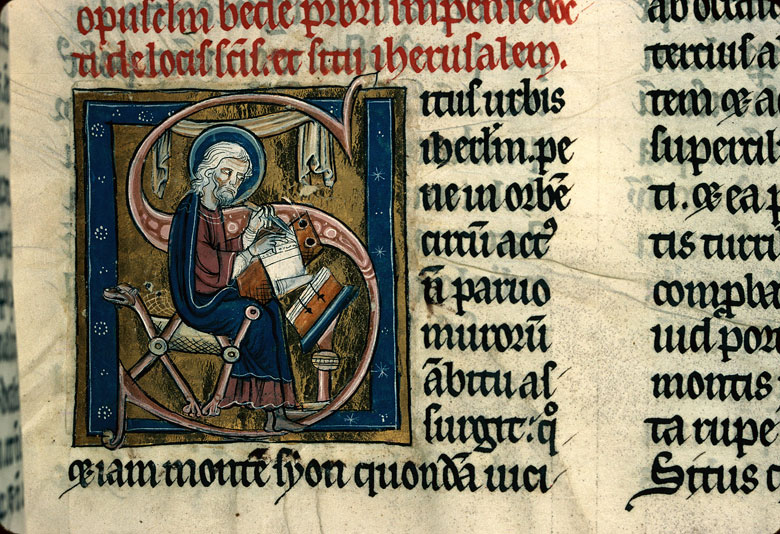 opusculū bede prbri impense doc
ti de locis scīs. et situ iherusalem.
itus urbis
iherlm̄. pe
ne in orbē
circū act⁹
n̄ paruo
murorū
ābitu as
surgit: q̊
⁊ iam montē syon quondā uici
tercius a
tem ⁊ a
supercil
ti. ⁊ ea p
tis turri
uid por
montis
ta rupe
Situs c